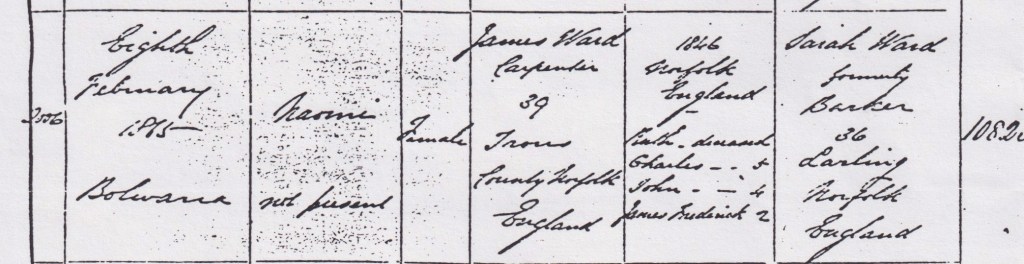 Eighth
February
1855
Bolwarra
Naomi
not present
Female
James Ward
Carpenter
39
County Norfolk
England
1846
Norfolk
England
Ruth - deceased
Charles - -
John - - 4
James Frederick 2
Sarah Ward
formerly
Barker
36
Larling
Norfolk
England